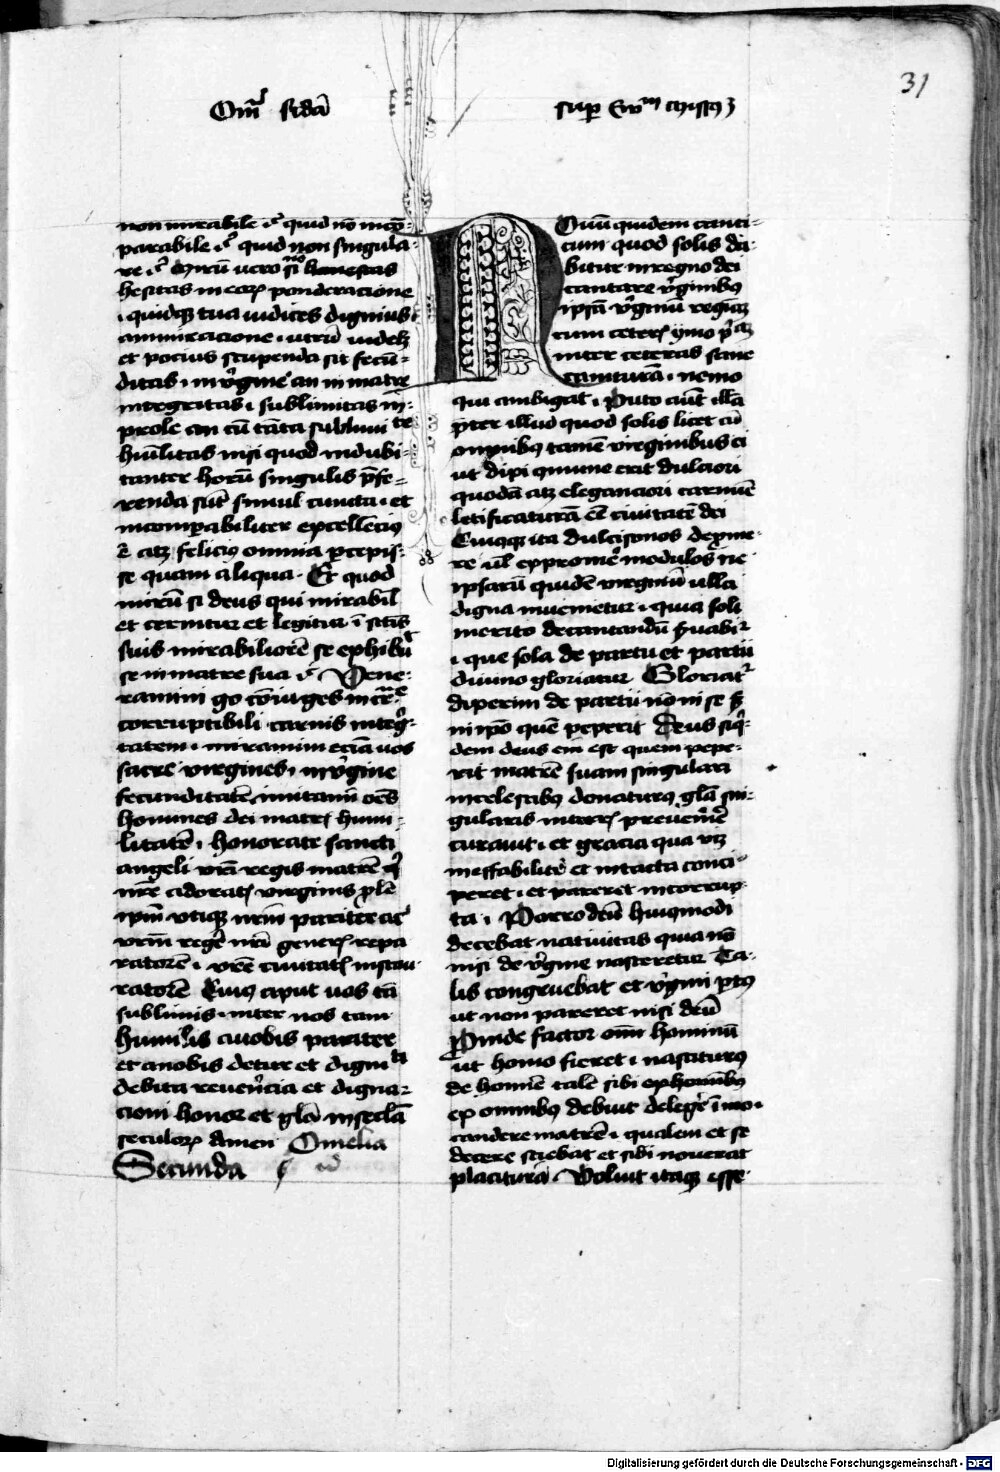 31
Om̅ʳ sc̅da̅
sup̱ Ew̅ᵐ missus
non mirabile · ē · quid no̅ inco̅-
parabile · ē · quid non singula-
re · ē · Miru̅ uero si no̅ hanesitas
hesitas in ear̅ꝝ ponderacione
· quidqꝫ tua iudices dignius ·
ammiracione · utru̅ uidelꝫ
et pocius stupenda sit fecu̅-
ditas · in v̅gine an in matre
integritas · sublimitas in̅
prole an cu̅ ta̅ta sublimitate
hu̅ilitas nisi quod indubi-
tanter horu̅ singulis p̅fe-
renda su̅t simul cuncta · et
incomp̱abiliter excelle̅cius
ē atqꝫ felicius omnia p̱cepis-
se quam aliqua · Et quod
miru̅ si deus qui mirabil̅
et cernitur et legitur i̅ sc̅is
suis mirabiliore̅ se exhibu̅
se in matre sua · ē · Vene-
ramini g̊o co̅iuges in car̅ne
corruptibili carnis integ̅-
tatem · miramini ecia̅ uos
sacre virgines · in v̅gine
fecunditate̅ imitami̅ oe̅s
homines dei matrꝭ humi-
litate̅ · honorate sancti
angeli vr̅i regis matre̅ q̅
nr̅e adoratꝭ virginis p̱le̅
ip̅m vtiqꝫ nr̅m pariter ac
vr̅m rege̅ nr̅i generꝭ repa
ratore̅ · vr̅e ciuitatꝭ instau-
ratore̅ Cuius aput uos ta̅
sublimis · inter nos tam
humilis a uobis pariter
et a nobis detur et dignita
debita reuere̅cia et digna-
cioni honor et gl̅a in secl̅a
seculorꝝ Amen Omelia
Secunda
Nouu̅ quidem canti-
cum quod solis da-
bitur in regno dei
cantare v̅ginibus
ipsa̅ v̅ginu̅ regina̅
cum ceterꝭ ymo p̅a̅
inter ceteras sane
cantura̅ · nemo
qui ambigat · Puto aute̅ illa̅
p̅ter illud quod solis licet cu̅
omnibus tame̅ virginibus ei
ut dixi co̅mune erit dulciori
quoda̅ atqꝫ eleganciori carmi̅e
letificatura̅ e̅e̅ ciuitate̅ dei
Cuiusqꝫ ita dulcisonos dep̱me-
re ul̅ exprome̅ modulos ne
ipsaru̅ quide̅ virginu̅ ulla
digna inuenietur · quia soli
merito decantandu̅ s̅uabit̅
· que sola de partu et partu
diuino gloriatur Gloriatʳ
dixerim de partu no̅ in se s̅
in ip̅o que̅ peperit Deus siq̅-
dem deus eni̅ est quem pepe-
rit matre̅ suam singulari
in celestibus donaturus gl̅a sin-
gularis in terrꝭ preueni̅e
curauit · et gracia qua viꝫ
ineffabilit̅ et intacta conci-
peret · et pareret incorrup-
ta · Porro deu̅ huiusmodi
decebat natiuitas qua no̅
nisi de v̅gine nasceretur Ta-
lis congruebat et v̅gini p̱tus
ut non pareret nisi deu̅
Proinde factor om̅ hominu̅
ut homo fieret · nasciturus
de homi̅e tale̅ sibi ex homi̅bus
ex omnibus debuit delege̅ i̅mo ·
candere matre̅ · qualem et se
decere sciebat et sibi nouerat
placitura̅ · Voluit itaqꝫ esse
Digitalisierung gefördert durch die Deutsche Forschungsgemeinschaft - DFG